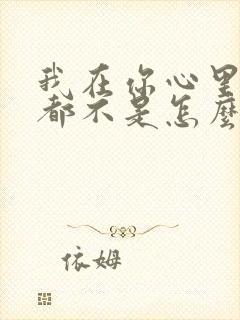 我在你心里
都不是怎麼
依姆